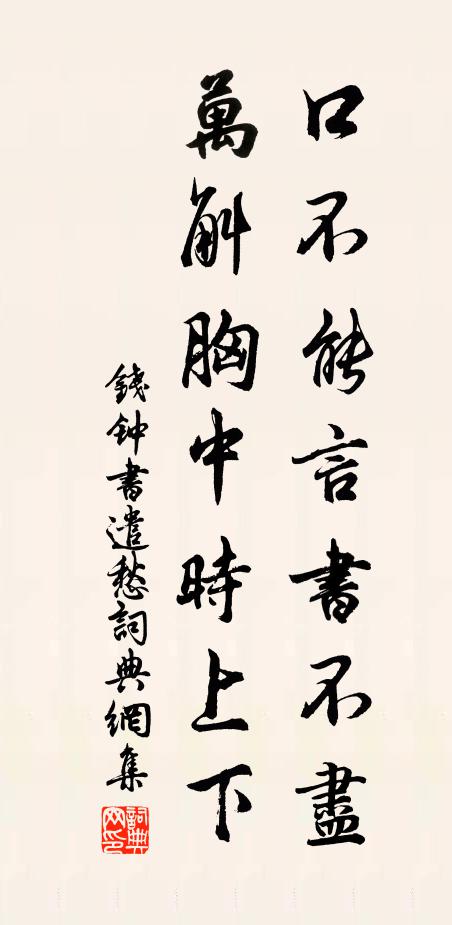 口不能言書不盡
萬斛胸中時上下
錢钟書遣愁詞典網集
詞典網印